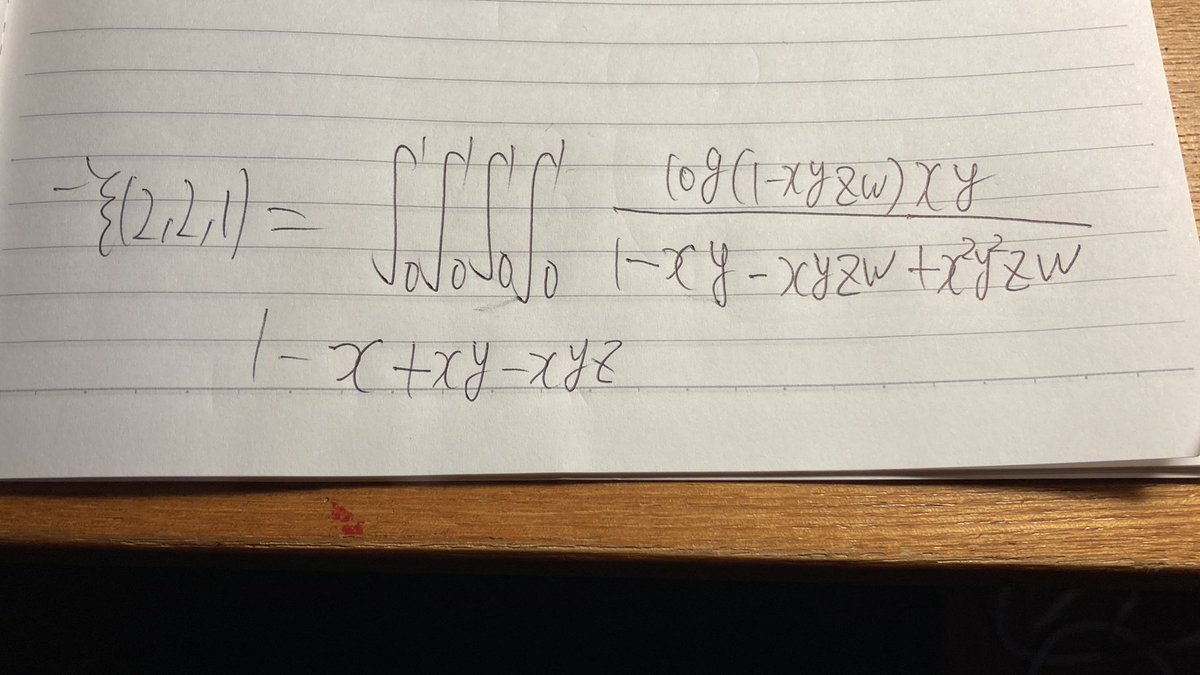 -ξ(2,2,1) = ∫₀¹∫₀¹∫₀¹∫₀¹ log(1-xyzw)xy / 1-xy-xyzw+x²y²zw
1-x+xy-xyz